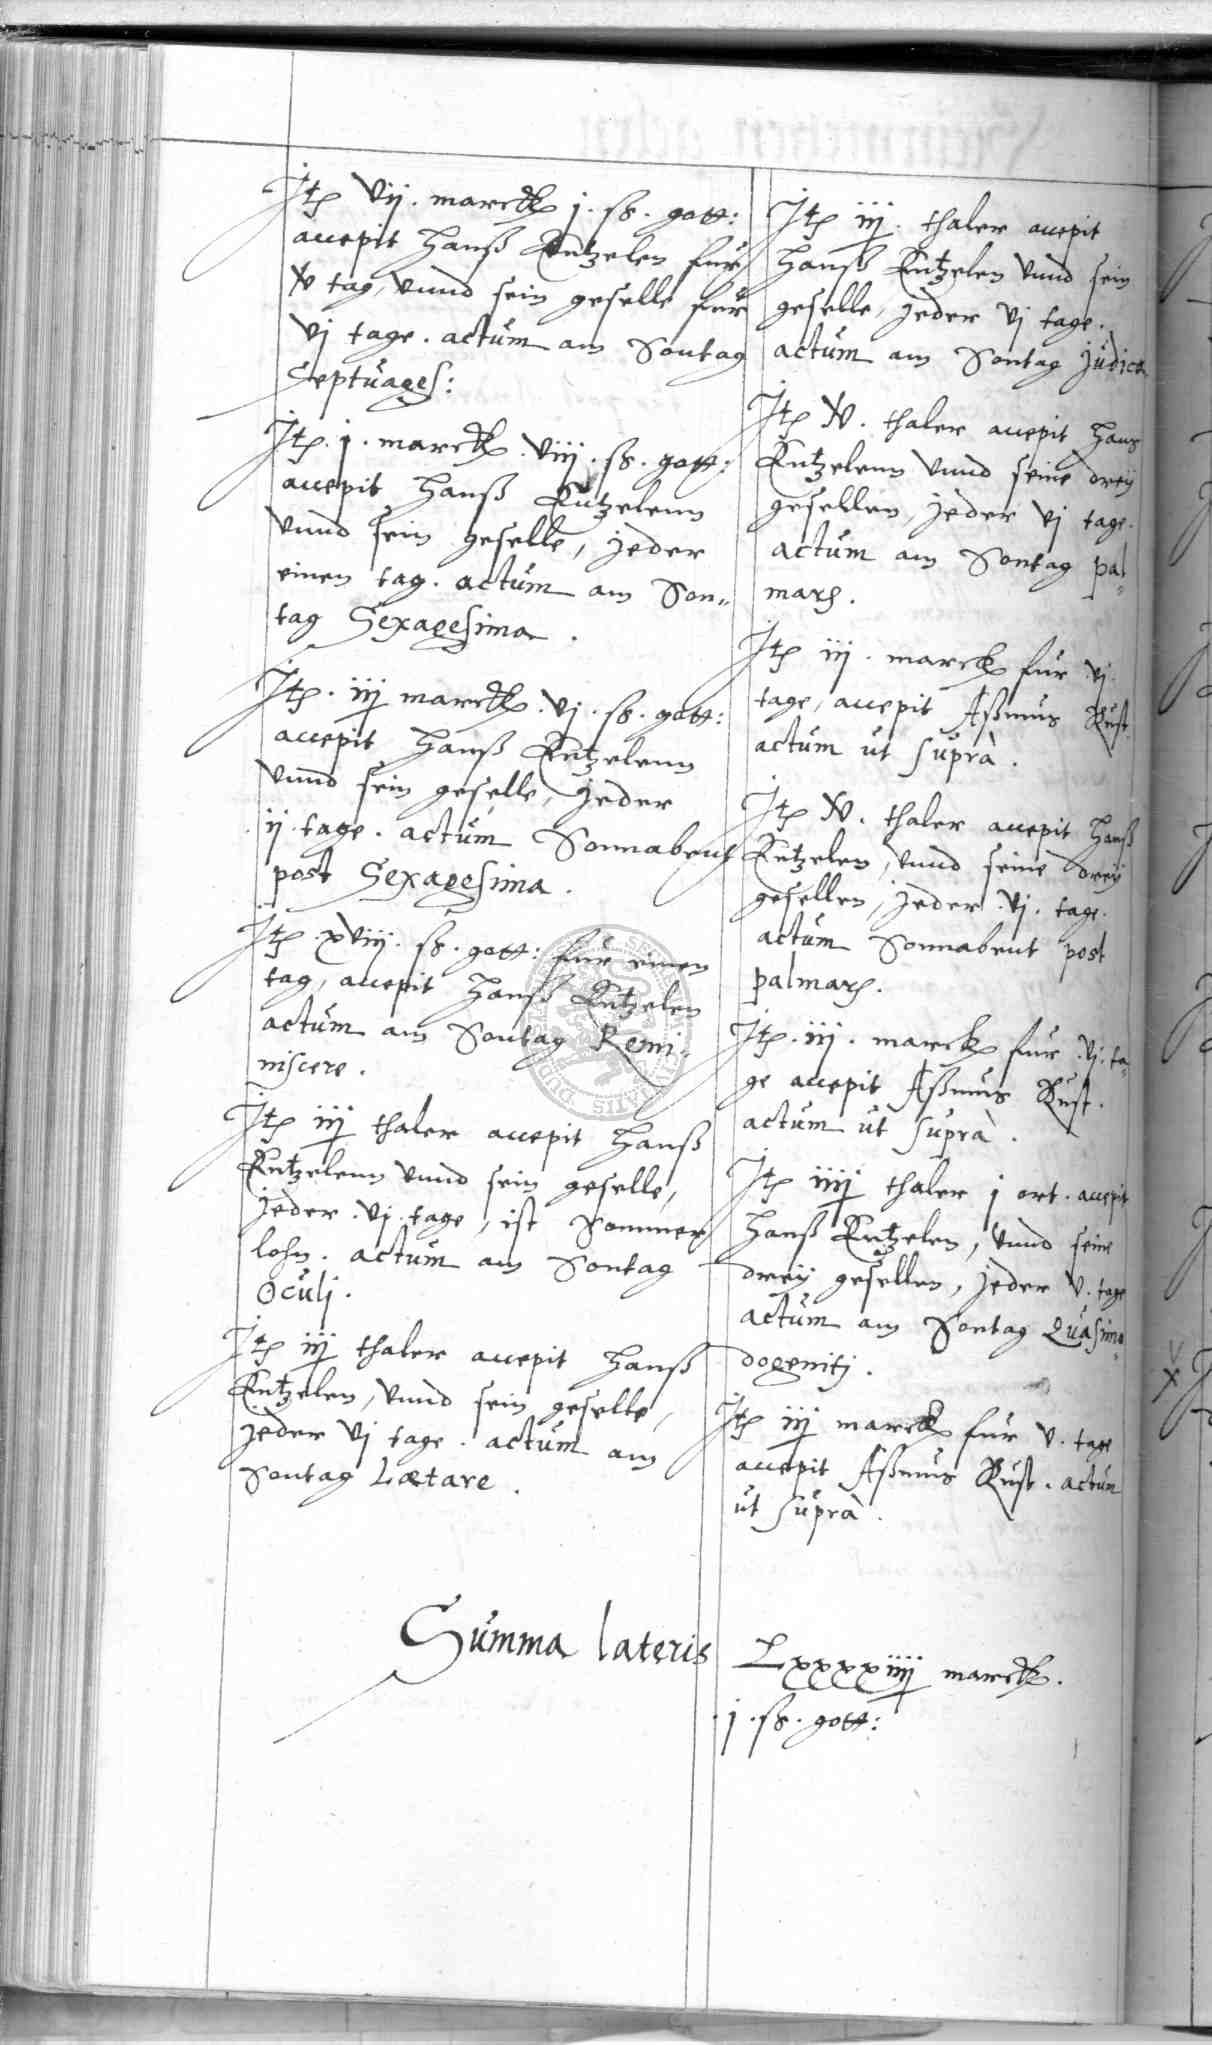 Itē vij. marck j. sß. gott:
accepit Hanß Kutzelen fur
x tag, vnnd sein geselle fur
vj tage. actum am Sontag
Septuages:
Itē. j. marck. viij. sß. gott:
accepit Hanß Kutzelenn
vnnd sein geselle, jeder
einen tag. actum am Son„
tag Sexagesima.
Itē. iij marck. vj. sß. gott:
accepit Hanß Kutzelenn
vnnd sein geselle, jeder
ij tage. actum Sonnabent
post Sexagesima.
Itē. xviij. sß. gott: fur einen
tag, accepit Hanß Kutzelen
actum am Sontag Remi„
niscere.
Itē iij thaler accepit Hanß
Kutzelenn vnnd sein geselle,
jeder. vj. tage, ist Sommer
lohn. actum am Sontag
Oculj.
Itē iij thaler accepit Hanß
Kutzelen, vnnd sein geselle,
jeder vj tage. actum am
Sontag Lætare.
Itē iij. thaler accepit
Hanß Kutzelen vnnd sein
geselle, jeder vj tage.
actum am Sontag Judica
Itē v. thaler accepit Hans
Kutzelenn vnnd seine drey
gesellen, jeder vj tage.
actum am Sontag pal„
marū.
Itē iij. marck fur vj.
tage, accepit Aßmus Rust.
actum ut suprà.
Itē v. thaler accepit Hanß
Kutzelen, vnnd seine drey
gesellen, jeder. vj. tage.
actum Sonnabent post
palmarū.
Itē. iij. marck fur. vj. ta„
ge accepit Aßmus Rust.
actum ut suprà.
Itē iiij thaler j ort. accepit
Hanß Kutzelen, vnnd seine
drey gesellen, jeder v. tage
actum am Sontag Quasimo„
dogenitj.
Itē iij marck fur v. tage
accepit Aßmus Rust. actum
ut suprà.
Summa lateris Lxxxxiiij marck.
j. sß. gott: